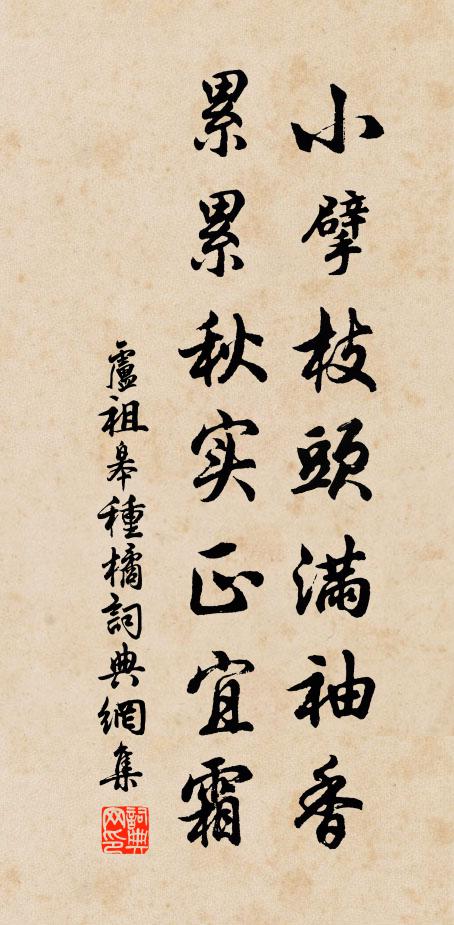 小擘枝頭滿袖香
累累秋实正宜霜
盧祖皋種橘詞典網集
詞典網印